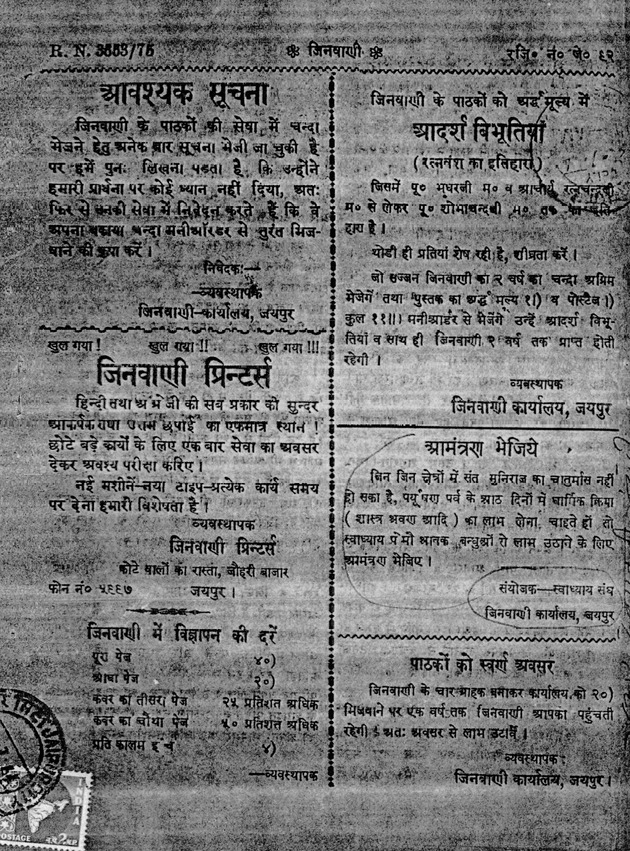 R. N. 3553/75
❀ जिनवाणी ❀
रजि० नं० जे० ६२
आवश्यक सूचना
जिनवाणी के पाठकों की सेवा में चन्दा
भेजने हेतु अनेक बार सूचना भेजी जा चुकी है
पर हमें पुनः लिखना पडता है कि उन्होंने
हमारी प्रार्थना पर कोई ध्यान नहीं दिया, अतः
फिर से उनकी सेवा में निवेदन करते हैं कि वे
अपना बकाया चन्दा मनीऑरडर से तुरंत भिज-
वाने की कृपा करें ।
निवेदक:—
—व्यवस्थापक
जिनवाणी-कार्यालय, जयपुर
खुल गया ! खुल गया !! खुल गया !!!
जिनवाणी प्रिन्टर्स
हिन्दी तथा अंग्रेजी की सब प्रकार की सुन्दर
आकर्षक तथा उत्तम छपाई का एकमात्र स्थान !
छोटे बड़े कार्यो के लिए एक बार सेवा का अवसर
देकर अवश्य परीक्षा करिए ।
नई मशीनें-नया टाइप-प्रत्येक कार्य समय
पर देना हमारी विशेषता है ।
व्यवस्थापक
जिनवाणी प्रिन्टर्स
कोटे वालों का रास्ता, चौड़ा बाजार
फोन नं० ५९९७ जयपुर ।
जिनवाणी में विज्ञापन की दरें
पूरा पेज ४०)
आधा पेज २०)
कवर का तीसरा पेज २५ प्रतिशत अधिक
कवर का चौथा पेज ५० प्रतिशत अधिक
प्रति कालम इंच ४)
—व्यवस्थापक
जिनवाणी के पाठकों को अर्द्ध मूल्य में
आदर्श विभूतियां
(रत्नवंश का इतिहास)
जिसमें पू० भूधरजी म० व आचार्य रत्नचन्द्रजी
म० से लेकर पू० शोभाचन्दजी म० तक का इति-
हास है ।
थोडी ही प्रतियां शेष रही है, शीघ्रता करें ।
जो सज्जन जिनवाणी का २ वर्ष का चन्दा अग्रिम
भेजेगें तथा पुस्तक का अर्द्ध मूल्य १।) व पोस्टेज ।)
कुल ११॥। मनीआर्डर से भेजेंगे उन्हें आदर्श विभू-
तियाँ व साथ ही जिनवाणी २ वर्ष तक प्राप्त होती
रहेगी ।
व्यवस्थापक
जिनवाणी कार्यालय, जयपुर
आमंत्रण भेजिये
जिन जिन क्षेत्रों में संत मुनिराज का चातुर्मास नहीं
हो सका है, पर्यूषण पर्व के आठ दिनों में धार्मिक क्रिया
( शास्त्र श्रवण आदि ) का लाभ लेना चाहते हों तो
स्वाध्याय प्रेमी श्रावक बन्धुओं से लाभ उठाने के लिए
आमंत्रण भेजिए ।
संयोजक—स्वाध्याय संघ
जिनवाणी कार्यालय, जयपुर
पाठकों को स्वर्ण अवसर
जिनवाणी के चार ग्राहक बनाकर कार्यालय को २०)
भिजवाने पर एक वर्ष तक जिनवाणी आपको पहुंचती
रहेगी अतः अवसर से लाभ उठावें ।
व्यवस्थापक:
जिनवाणी कार्यालय, जयपुर ।
INDIA
POSTAGE